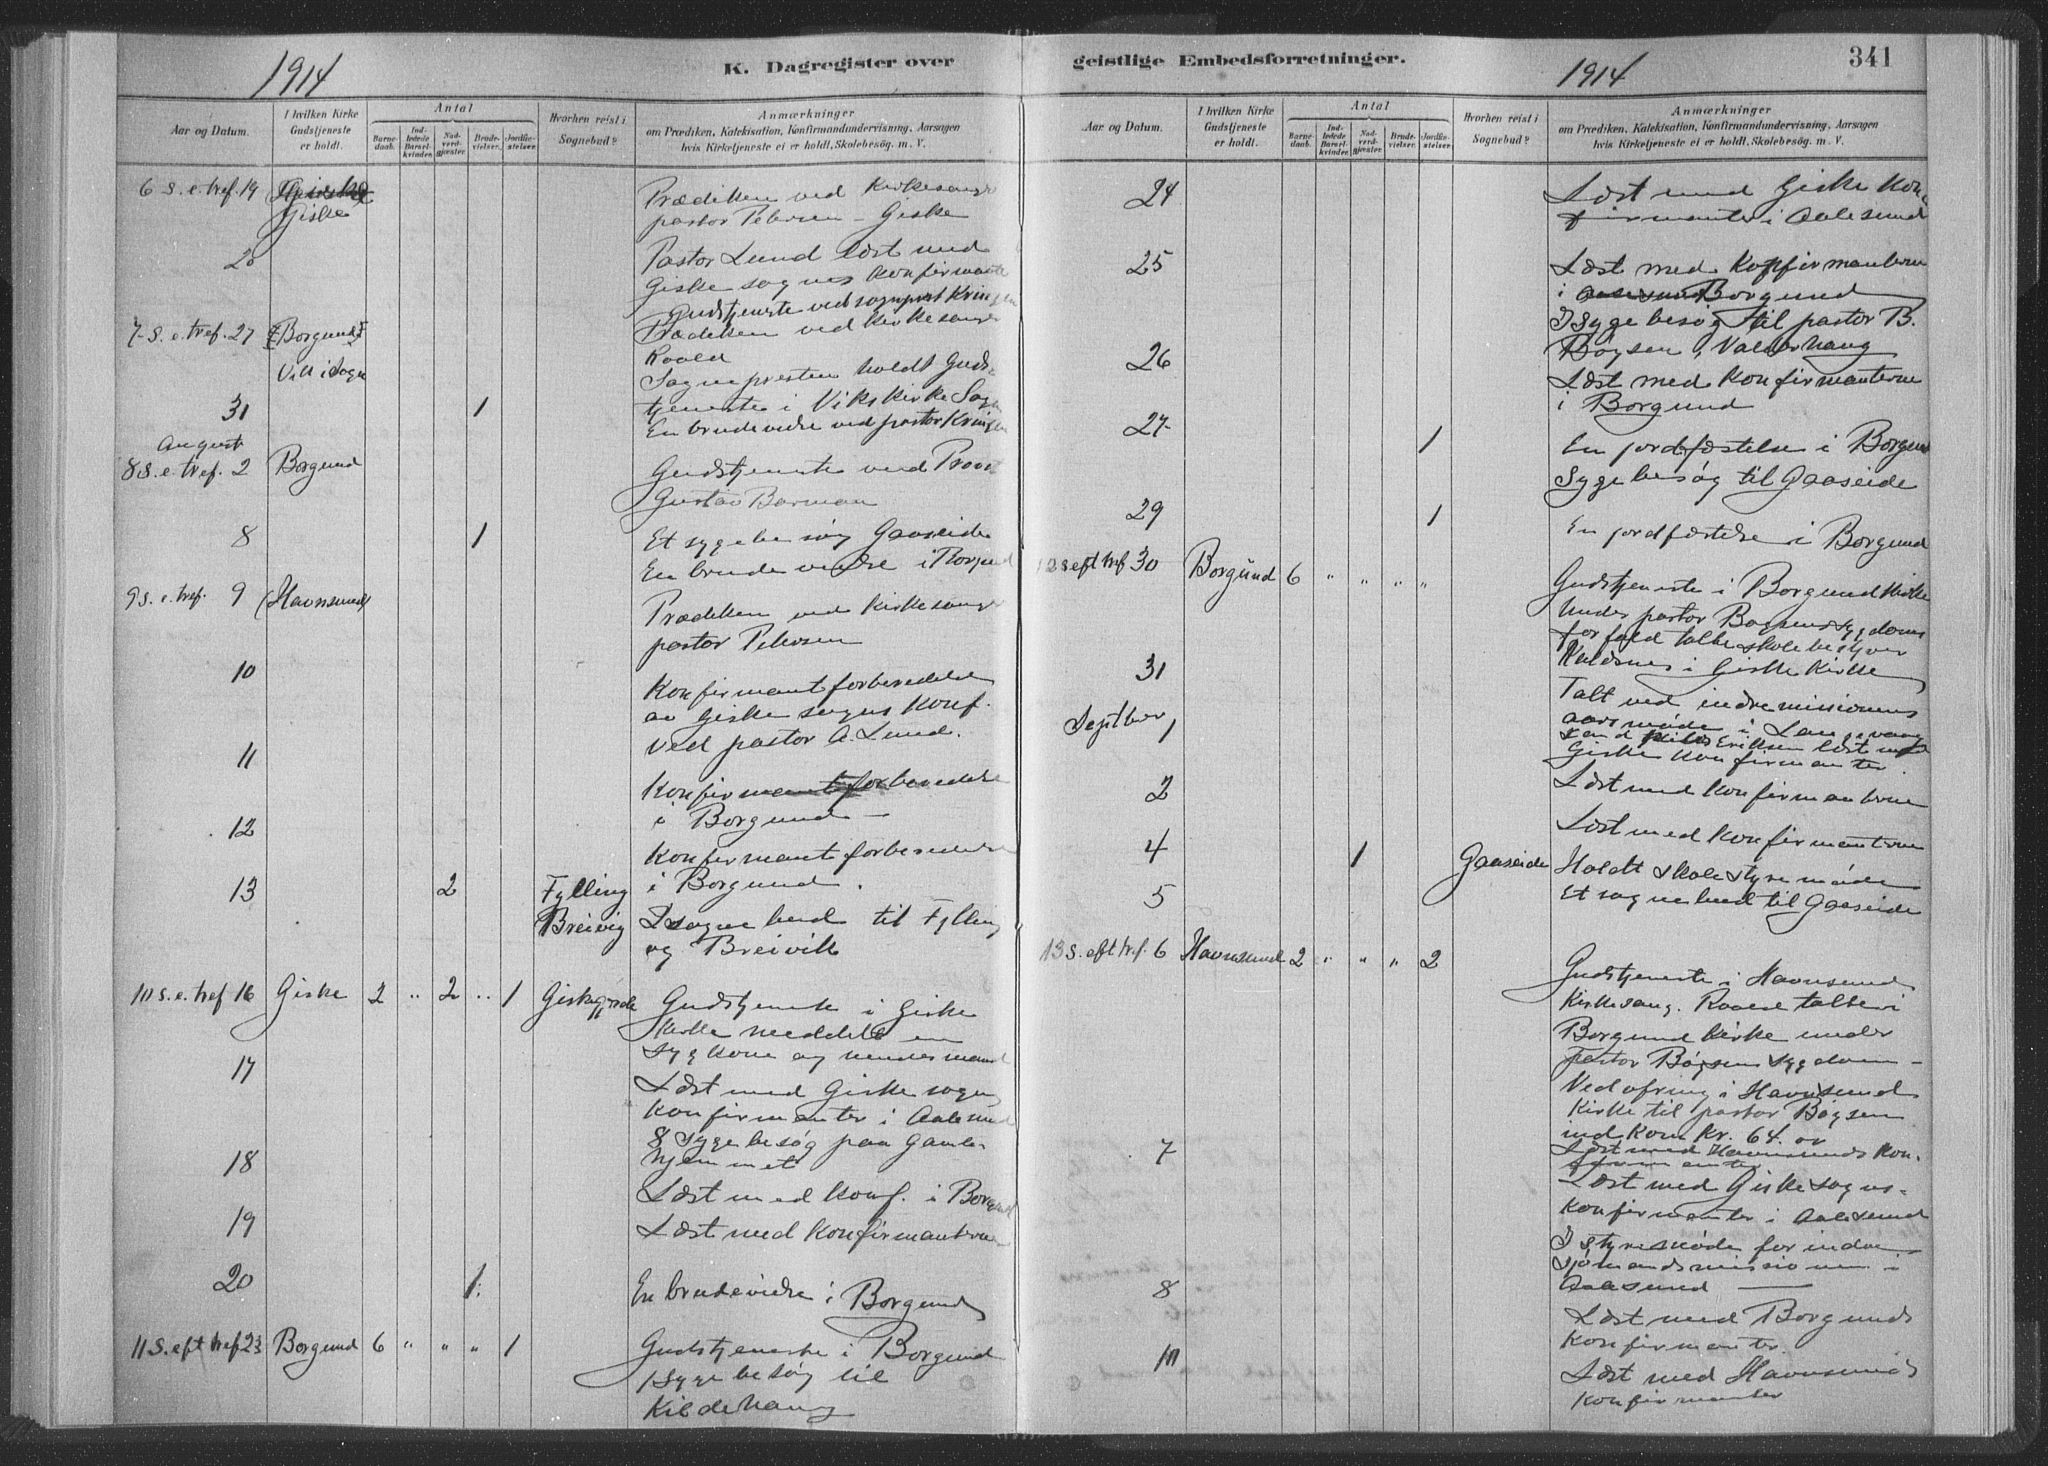 1914
K. Dagregister over
Aar og Datum.
I hvilken Kirke
Gudstjeneste
er holdt.
Antal
Barne-
daab.
Ind-
ledede
Barsel-
kvinder.
Nad-
verd-
gjæster.
Brude-
vielser.
Jordfæ-
stelser.
Hvorhen reist i
Sognebud?
Anmærkninger
om Prædiken, Katekisation, Konfirmandundervisning, Aarsagen
hvis Kirketjeneste ei er holdt, Skolebesøg. m. V.
6 S. e. tref. 19 Giske
Prædiken ved Kirkesanger
pastor Petersen - Giske
20
Pastor Lund læst med
Giske sogns Konfirmanter
Gudstjeneste ved sognprest
7 S. e. tref. 27 Borgund
Prædiken ved Kirkesanger
Roald
Vik i Sogn
Sognepresten holdt Guds-
tjeneste i Viks Kirke Sogn
31 1
En brudevielse ved pastor
August
8 S. e. tref. 2 Borgund
Gudstjeneste ved Provst
Gustav Barman
8 1
Et sygebesøg Gaaseide
En brudevielse i Borgund
9 S. e. tref. 9 (Havnsund)
Prædiken ved Kirkesanger
pastor Petersen
10
Konfirmantforberedelse
av Giske sogns Konf.
ved pastor A. Lund.
11
Konfirmantforberedelse
i Borgund
12
Konfirmantforberedelse
i Borgund.
13 2 Fylling
Breivig
I sognebud til Fylling
og Breivik
10 S. e. tref 16 Giske 2 " 2 " 1 Giskegjerde
Gudstjeneste i Giske
Kirke meddelt en
syg kone og hendes mand
17
Læst med Giske sogns
Konfirmanter i Aalesund
8 sygebesøg paa Gamle-
hjemmet
18
Læst med Konf. i Borgund
19
Læst med Konfirmanterne
20 1
En brudevielse i Borgund
11 S. eft tref 23 Borgund 6 " " " 1
Gudstjeneste i Borgund
1 Sygebesøg til
Kildehaug
geistlige Embedsforretninger.
1914
341
Aar og Datum.
I hvilken Kirke
Gudstjeneste
er holdt.
Antal
Barne-
daab.
Ind-
ledede
Barsel-
kvinder.
Nad-
verd-
gjæster.
Brude-
vielser.
Jordfæ-
stelser.
Hvorhen reist i
Sognebud?
Anmærkninger
om Prædiken, Katekisation, Konfirmandundervisning, Aarsagen
hvis Kirketjeneste ei er holdt, Skolebesøg. m. V.
24
Læst med Giske Kon-
firmanter i Aalesund
25
Læst med Konfirmanterne
i Borgund
I Sygebesøg til pastor B.
Bøgsen i Valderhaug
26
Læst med Konfirmanterne
i Borgund
27 1
En jordfæstelse i Borgund
Sygebesøg til Gaaseide
29 1
En jordfæstelse i Borgund
12 S eft tref 30 Borgund 6 " " " "
Gudstjeneste i Borgund Kirke
Under pastor Bøgsens sygdoms
forfald talte skolebestyrer
Kaldsnes i Giske Kirke
31
Talt ved indremissionens
aarsmøde i Langevaag
Septbr 1
Eriksen læst med
Giske Konfirmanter
2
Læst med Konfirmanterne
Læst med Konfirmanterne
4 1 Gaaseide
Holdt skolestyremøde
5
Et sognebud til Gaaseide
13 S. eft tref. 6 Havnsund 2 " " " 2
Gudstjeneste i Havnsund
Kirkesang. Roald talte i
Borgund Kirke under
Pastor Bøgsens sygdom -
Ved ofring i Havnsund
Kirke til pastor Bøgsen
ind Kom Kr. 64.
7
Læst med Havnsunds Kon-
firmanter
Læst med Giske sogns-
Konfirmanter i Aalesund
I styresmøde for indre
Sjømandsmissionen i
Aalesund
8
Læst med Borgunds
Konfirmanter.
10
Læst med Havnsunds
Konfirmanter